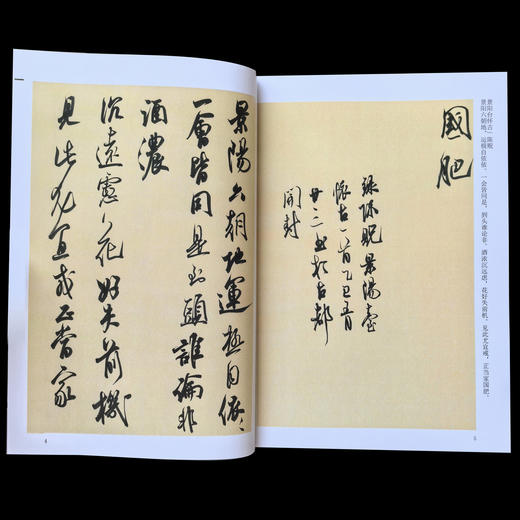 景陽六朝地運極自依〻
一會皆同是到頭誰論非
酒濃
沉遠慮花好失前機
見此尤宜戒正當家
4
國肥
錄陳貺景陽臺
懷古一首乙巳
廿二日於古都
開封
景阳台怀古 陈贶
景阳六朝地，运极自依依。一会皆同是，到头谁论非。酒浓沉远虑，花好失前机。见此尤宜戒，正当家国肥。
5